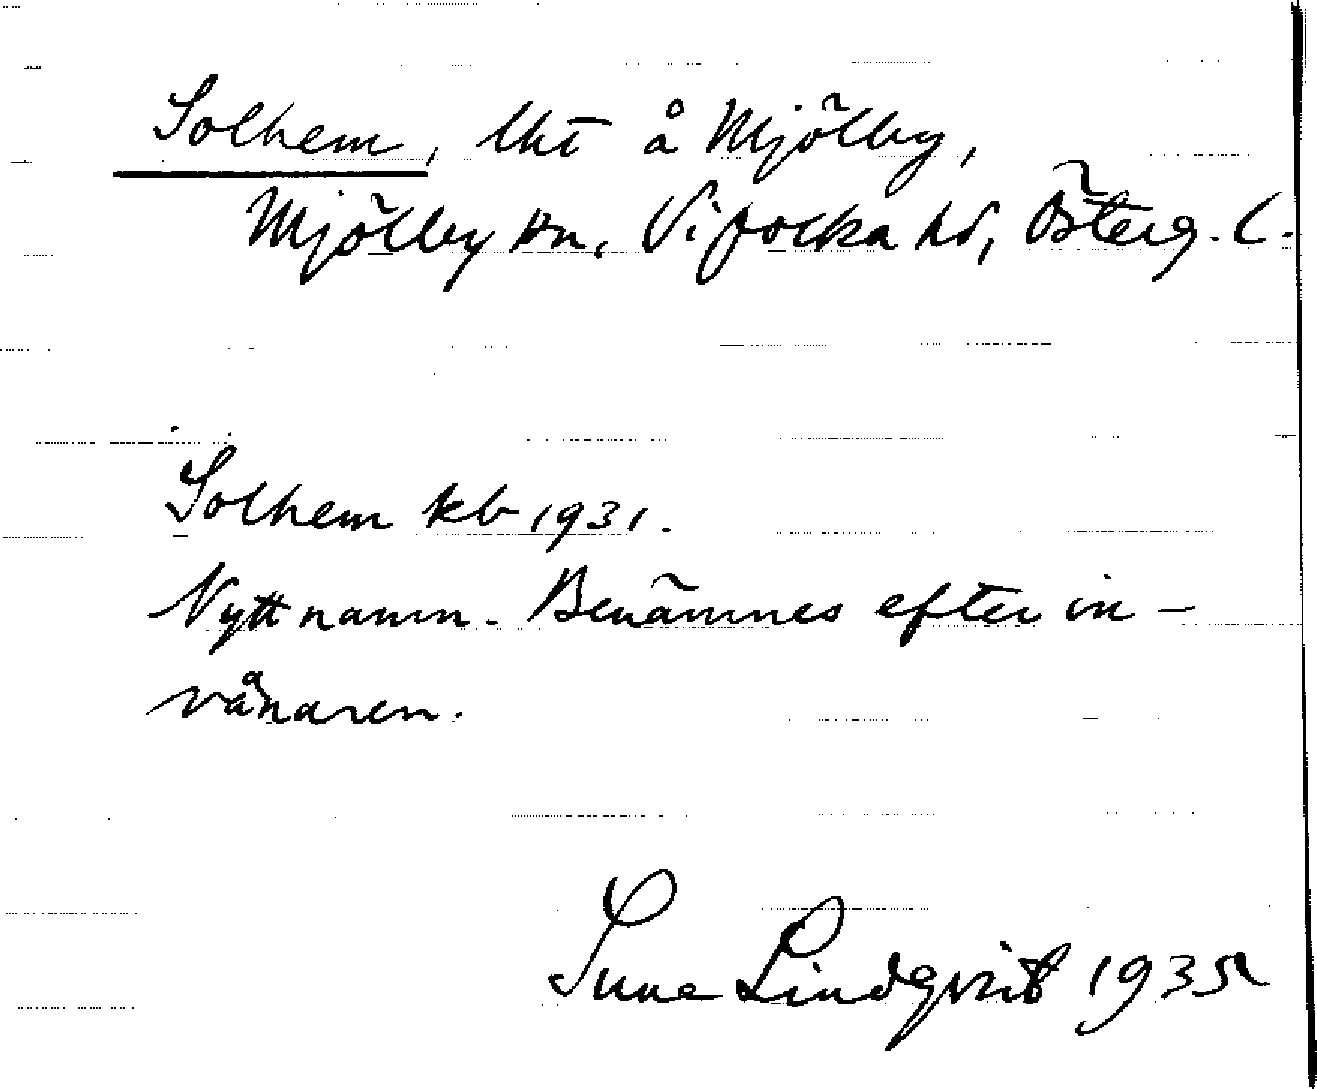 Solhem, lht å Mjölby,
Mjölby sn, Vifolka hd, Österg. l.
Solhem kb 1931.
Nytt namn. Benämnes efter in-
vånaren.
Sune Lindqvist 1935